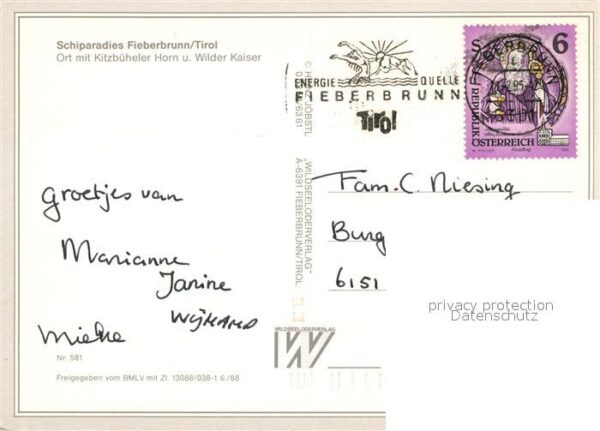 Schiparadies Fieberbrunn/Tirol
Ort mit Kitzbüheler Horn u. Wilder Kaiser
ENERGIE QUELLE
FIEBERBRUNN
Tirol
FIEBERBRUNN
S 6
REPUBLIK
ÖSTERREICH
Groetjes van
Marianne
Janine
WIJNAND
Mieke
Fam. C. Niesing
Burg
6151
"WILDSEELODERVERLAG"
A-6391 FIEBERBRUNN/TIROL
WILDSEELODERVERLAG
W
Nr. 581
Freigegeben vom BMLV mit Zl. 13088/038-1.6/88
privacy protection
Datenschutz